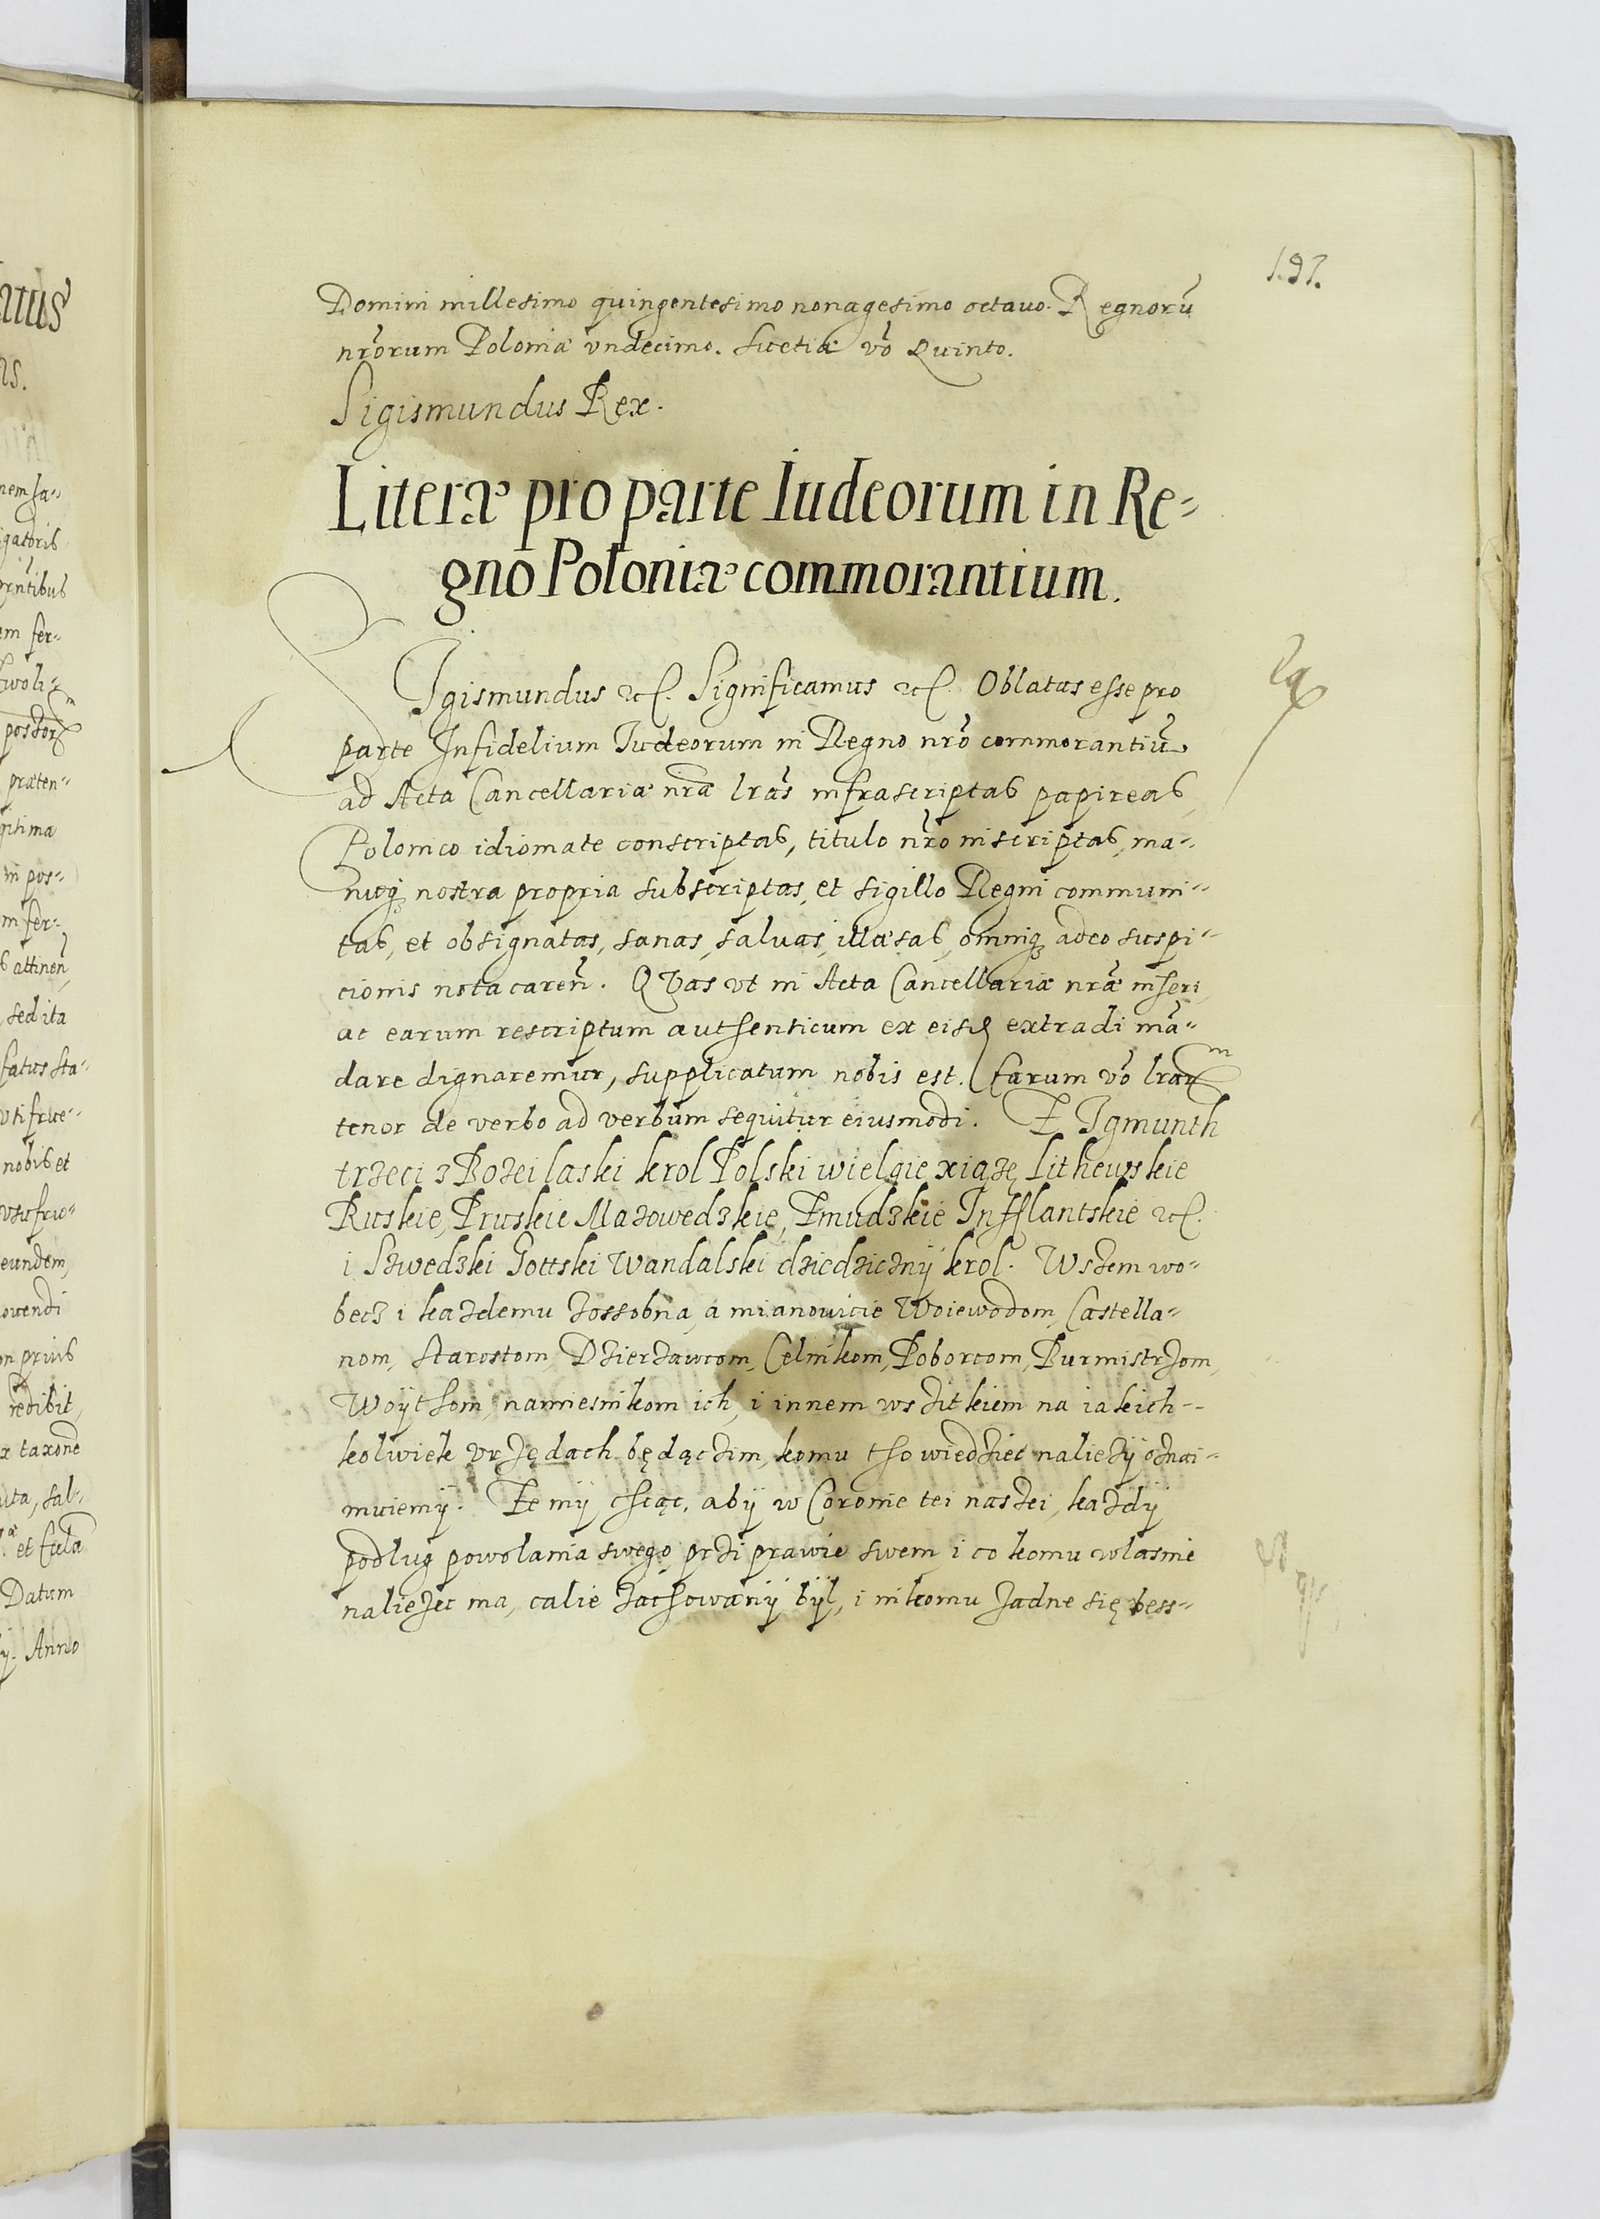 197.
Domini millesimo quingentesimo nonagesimo octauo. Regnorū
nrōrum Poloniæ vndecimo. Suetiæ vō Quinto.
Sigismundus Rex.
Literæ pro parte Iudeorum in Re-
gno Poloniæ commorantium.
SIgismundus etc. Significamus etc. Oblatas esse pro
parte Infidelium Iudeorum in Regno nrō commorantiū
ad Acta Cancellariæ nrǣ lrās infrascriptas papireas,
Polonico idiomate conscriptas, titulo nrō inscriptas, ma-
nuq; nostra propria subscriptas, et sigillo Regni communi-
tas, et obsignatas, sanas, saluas, illæsas, omniq; adeo suspi-
cionis nota careñ. QVas vt in Acta Cancellariæ nrǣ inseri,
ac earum rescriptum authenticum ex eisd extradi mā-
dare dignaremur, supplicatum nobis est. Earum vō lrarum
tenor de verbo ad verbum sequitur eiusmodi. ZIgmunth
trzeci z Bozei laski krol Polski wielgie xiązę Lithewskie
Ruskie, Pruskie Mazowedzkie, Zmudzkie Inflantskie etc.
i Szwedzki Gottski Wandalski dziedzicznÿ krol. Wszem wo-
becz i kazdemu zossobna, a mianowicie Woiewodom, Castella-
nom, Starostom, Dzierzawcom, Celnikom, Poborcom, Burmistrzom,
Woÿthom, namiesnikom ich, i innem wszitkiem na iakich-
kolwiek vrzędach będączim, komu tho wiedziec naliezÿ oznai-
muiemÿ. Ze mÿ chcąc, abÿ w Coronie tei naszei, kazdÿ
podlug powolania swego, przi prawie swem i co komu wlasnie
naliezec ma, calie zachowanÿ bÿl, i nikomu zadne się bess-